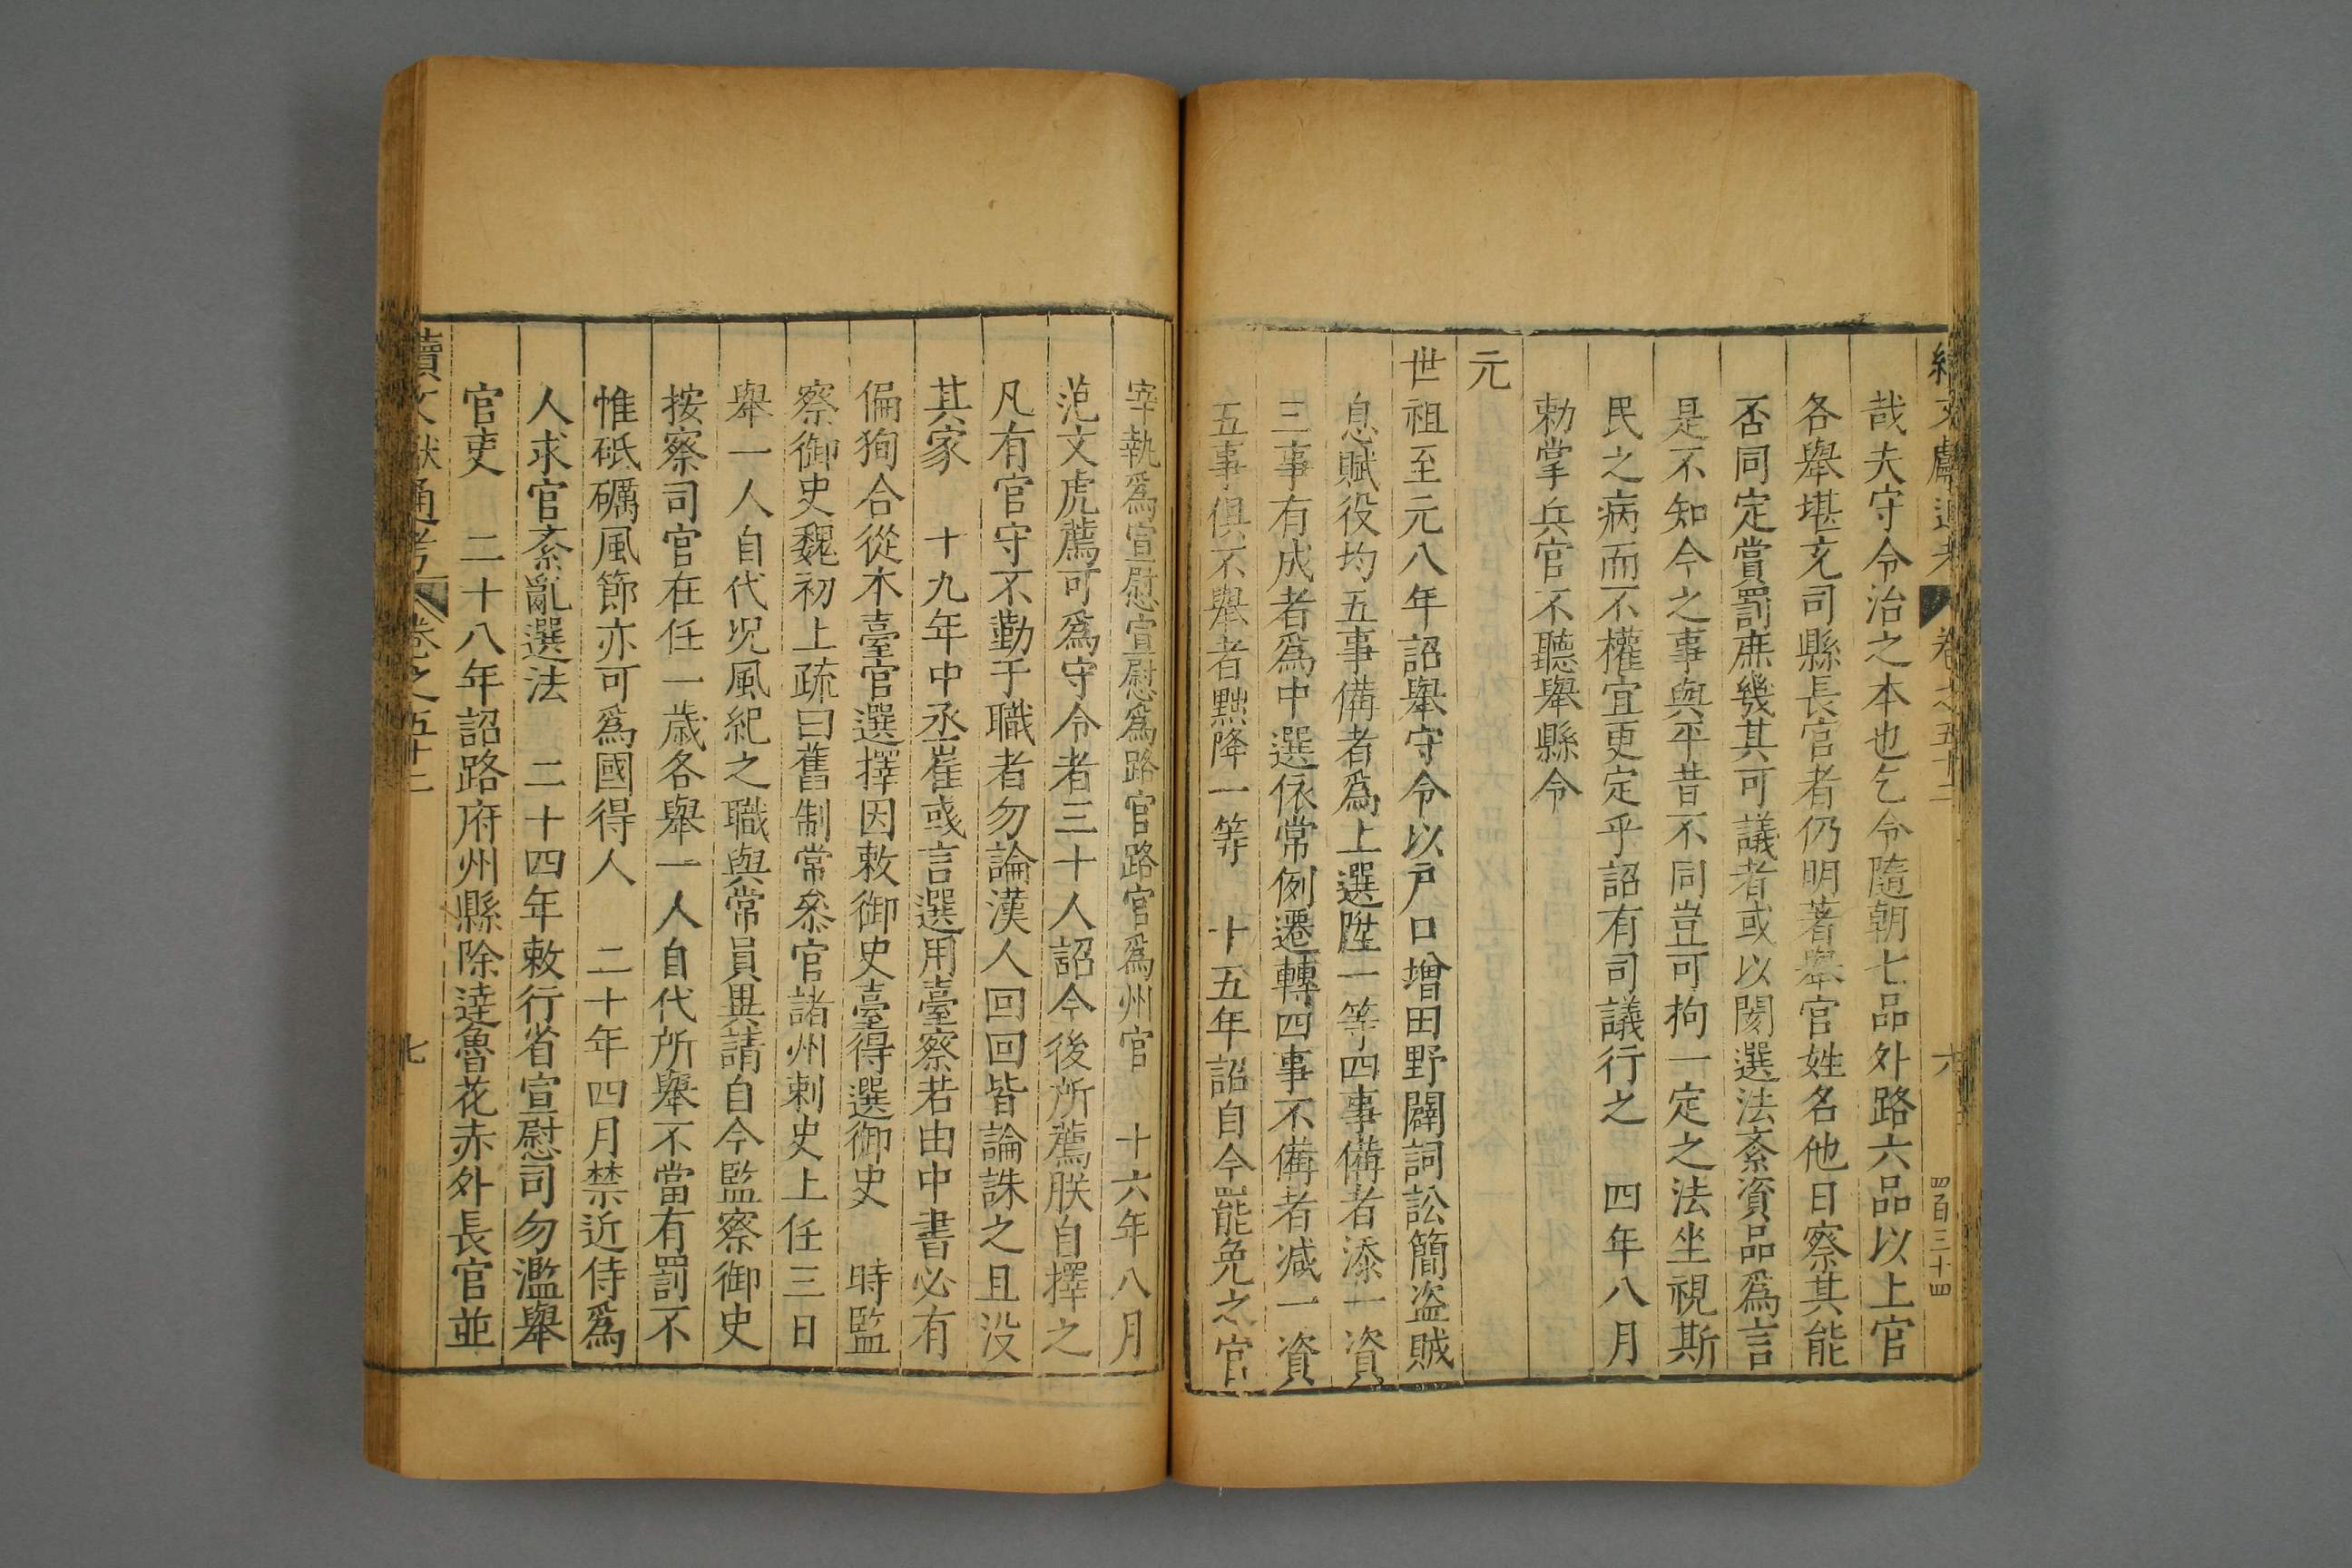 續文獻通考 卷之五十二 六 四百三十四
哉夫守令治之本也乞令隨朝七品外路六品以上官
各舉堪充司縣長官者仍明著舉官姓名他日察其能
否同定賞罰庶幾其可議者或以閡選法紊資品爲言
是不知今之事與平昔不同豈可拘一定之法坐視斯
民之病而不權宜更定乎詔有司議行之 四年八月
勅掌兵官不聽舉縣令
元
世祖至元八年詔舉守令以戸口增田野闢詞訟簡盜賊
息賦役均五事備者爲上選陞一等四事備者添一資
三事有成者爲中選依常例遷轉四事不備者减一資
五事俱不舉者黜降一等 十五年詔自今罷免之官
宰執爲宣慰宣慰爲路官路官爲州官 十六年八月
范文虎薦可爲守令者三十人詔今後所薦朕自擇之
凡有官守不勤于職者勿論漢人回回皆論誅之且没
其家 十九年中丞崔彧言選用臺察若由中書必有
偏狥合從本臺官選擇因敕御史臺得選御史 時監
察御史魏初上疏曰舊制常叅官諸州刺史上任三日
舉一人自代况風紀之職與常員異請自今監察御史
按察司官在任一歲各舉一人自代所舉不當有罰不
惟砥礪風節亦可爲國得人 二十年四月禁近侍爲
人求官紊亂選法 二十四年敕行省宣慰司勿濫舉
官吏 二十八年詔路府州縣除達魯花赤外長官並
續文獻通考 卷之五十二 七